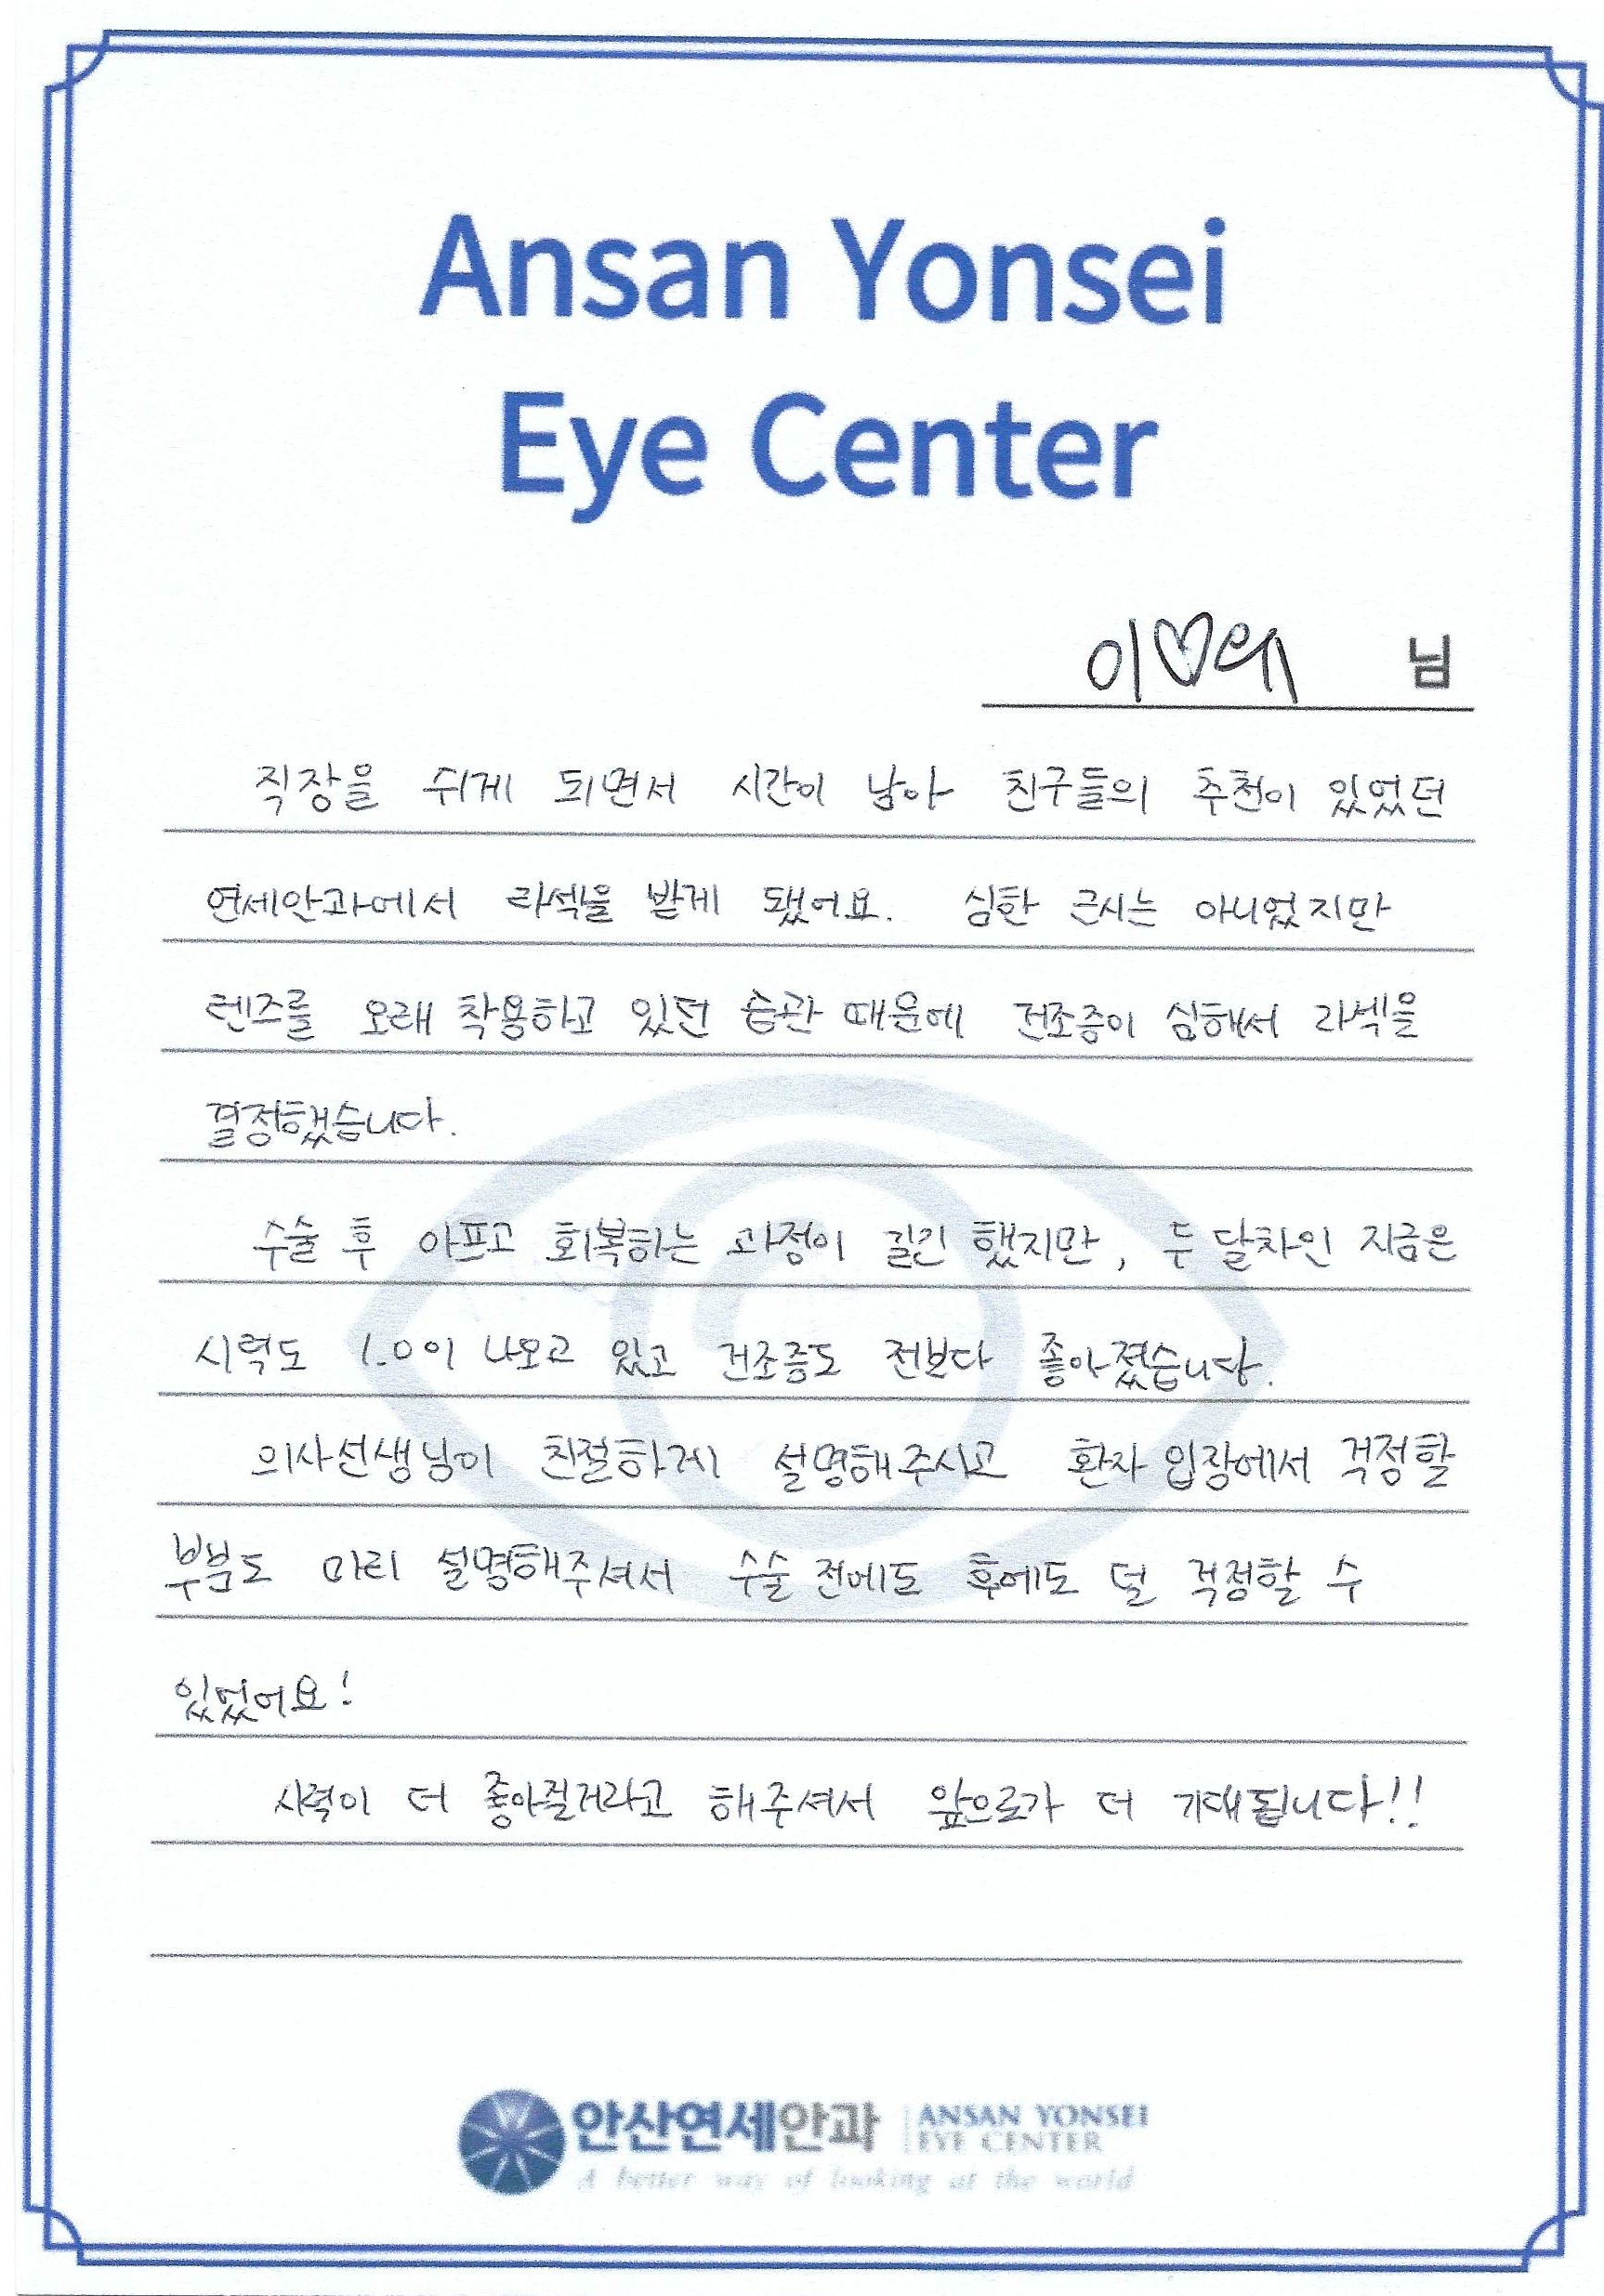 Ansan Yonsei
Eye Center
이♡예 님
직장을 쉬게 되면서 시간이 남아 친구들의 추천이 있었던
연세안과에서 라섹을 받게 됐어요. 심한 근시는 아니었지만
렌즈를 오래 착용하고 있던 습관 때문에 건조증이 심해서 라섹을
결정했습니다.
수술 후 아프고 회복하는 과정이 길긴 했지만, 두 달차인 지금은
시력도 1.0이 나오고 있고 건조증도 전보다 좋아졌습니다.
의사선생님이 친절하게 설명해주시고 환자 입장에서 걱정할
부분도 미리 설명해주셔서 수술 전에도 후에도 덜 걱정할 수
있었어요!
시력이 더 좋아질거라고 해주셔서 앞으로가 더 기대됩니다!!
안산연세안과 ANSAN YONSEI
EYE CENTER
A better way of looking at the world